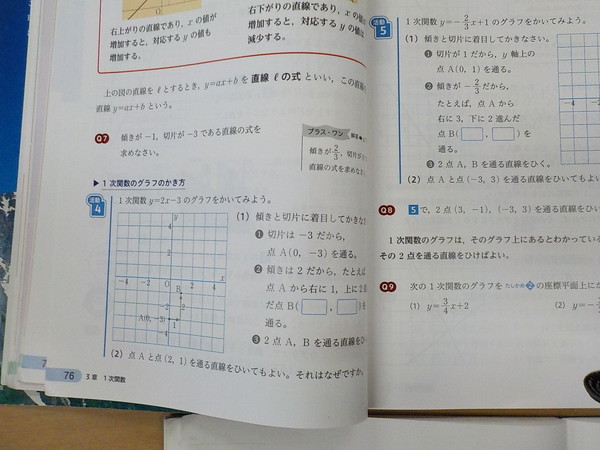 右上がりの直線であり，x の値が
増加すると，対応する y の値も
増加する。
右下がりの直線であり，x の値
増加すると，対応する y の
減少する。
上の図の直線を ℓ とするとき，y=ax+b を 直線 ℓ の式 といい，この直線
直線 y=ax+b という。
Q7 傾きが −1，切片が −3 である直線の式を
求めなさい。
プラス・ワン
傾きが 2/3，切片が
直線の式を求めな
▶ 1 次関数のグラフのかき方
活動 4 1 次関数 y=2x−3 のグラフをかいてみよう。
y
4
2
−4 −2 O 2 4 x
B
−2
2
A(0, −3)
1
−4
(1) 傾きと切片に着目してかきな
❶ 切片は −3 だから，
点 A(0, −3) を通る。
❷ 傾きは 2 だから，たとえば
点 A から右に 1，上に 2
だ点 B( , ) を
通る。
❸ 2 点 A，B を通る直線をひ
(2) 点 A と点 (2, 1) を通る直線をひいてもよい。それはなぜですか。
76 3 章 1 次関数
活動 5 1 次関数 y=−2/3x+1 のグラフをかいてみよう。
(1) 傾きと切片に着目してかきなさい。
❶ 切片が 1 だから，y 軸上の
点 A(0, 1) を通る。
❷ 傾きが −2/3 だから，
たとえば，点 A から
右に 3，下に 2 進んだ
点 B( , ) を
通る。
❸ 2 点 A，B を通る直線をひく。
−4
(2) 点 A と点 (−3, 3) を通る直線をひいてもよい
Q8 5 で，2 点 (3, −1)，(−3, 3) を通る直線をひい
1 次関数のグラフは，そのグラフ上にあるとわかってい
その 2 点を通る直線をひけばよい。
Q9 次の 1 次関数のグラフを たしかめ 2 の座標平面上にか
(1) y=3/4x+2
(2) y=−